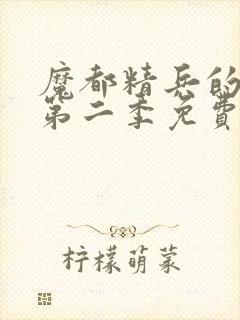 魔都精兵的
第二季免費
柠檬萌菜